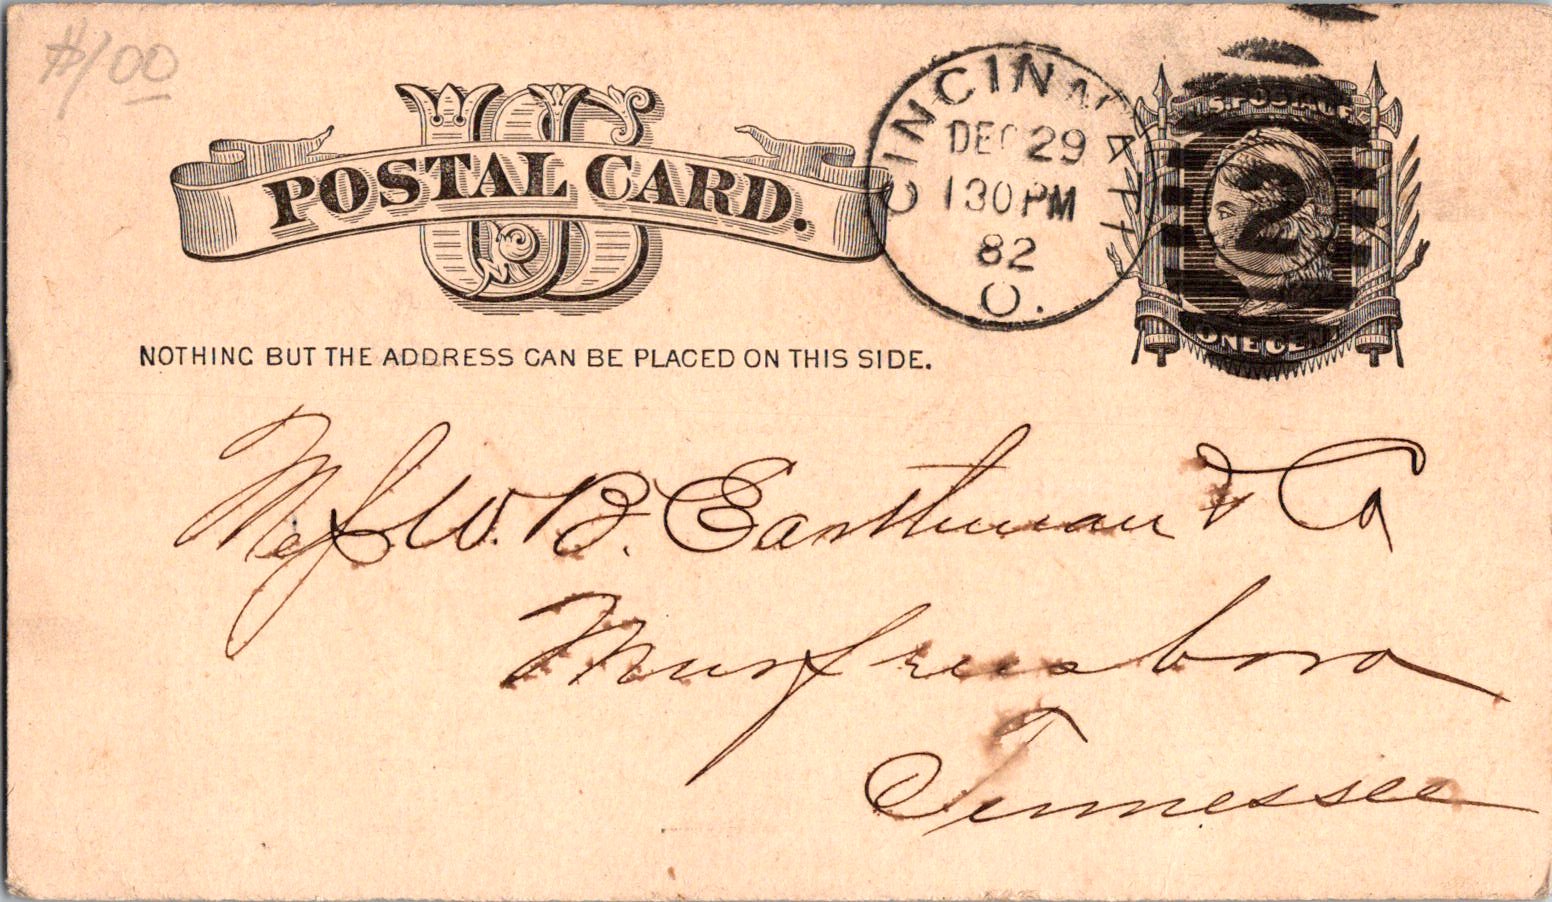 $1.00
US
POSTAL CARD.
CINCINNATI
DEC 29
130PM
82
O.
U.S. POSTAGE
2
ONE CENT
NOTHING BUT THE ADDRESS CAN BE PLACED ON THIS SIDE.
Messrs W. B. Earthman & Co
Murfreesboro
Tennessee